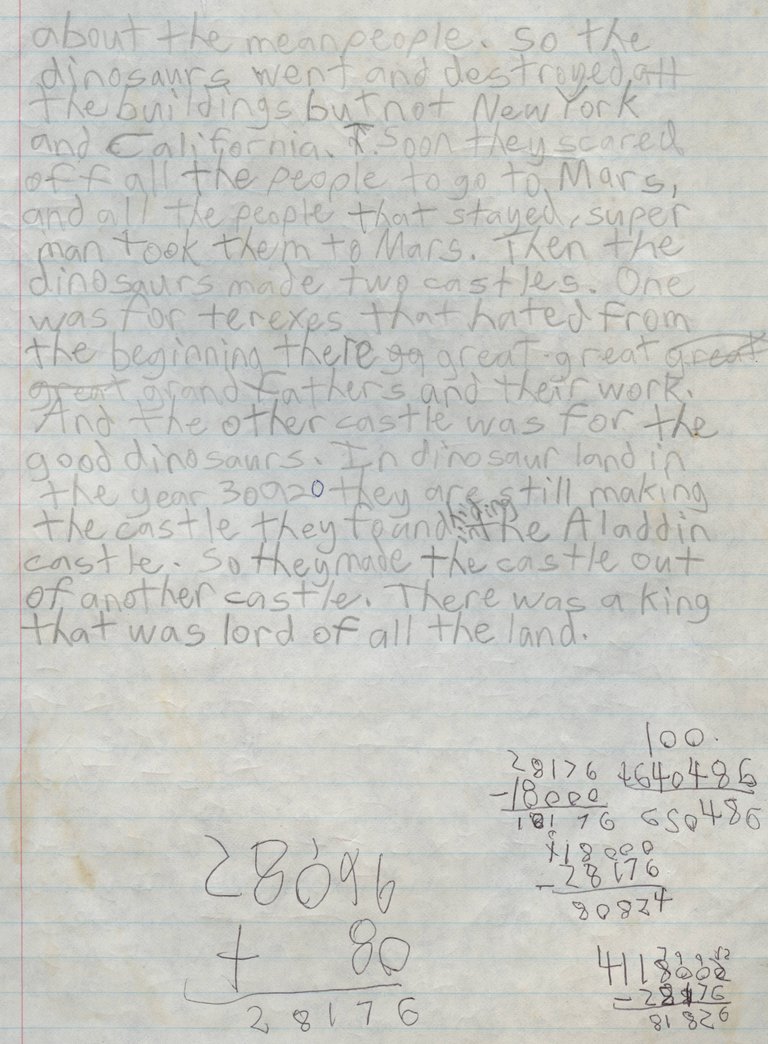 about the mean people. So the
dinosaurs went and destroyed all
the buildings but not New York
and California. Soon they scared
off all the people to go to Mars,
and all the people that stayed, super
man took them to Mars. Then the
dinosaurs made two castles. One
was for terexes that hated from
the beginning there great-great great
great grand fathers and their work.
And the other castle was for the
good dinosaurs. In dinosaur land in
the year 30920 they are still making
hiding
the castle they found in the Aladdin
castle. So they made the castle out
of another castle. There was a king
that was lord of all the land.
100.
28176 +640486
-18000
18176 650486
118000
-28176
80824
28096
+ 80
28176
-28176
81826